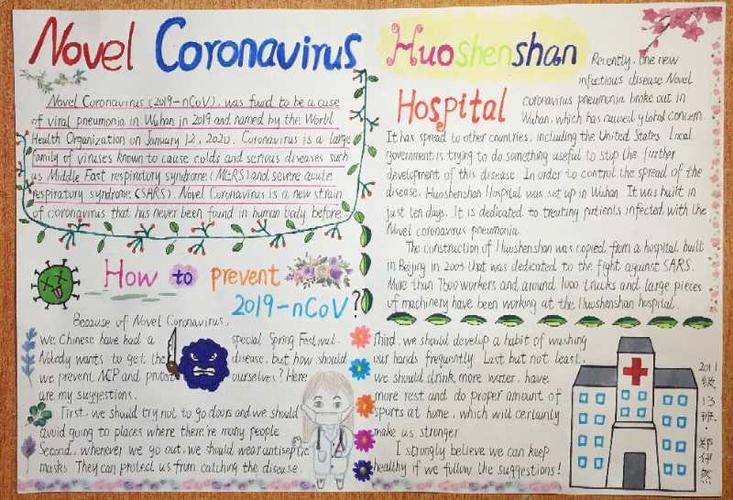 Novel Coronavirus
Novel Coronavirus (2019-nCoV), was fund to be a cause
of viral pneumonia in Wuhan in 2019 and named by the World
Health Organization on January 12, 2020. Coronavirus is a large
family of viruses known to cause colds and serious diseases such
as Middle East respiratory syndrome (MERS) and severe acute
respiratory syndrome (SARS). Novel Coronavirus is a new strain
of coronavirus that has never been found in human body before
How to prevent
2019-nCoV?
Because of Novel Coronavirus,
we Chinese have had a special Spring Festival.
Nobody wants to get the disease, but how should
we prevent NCP and protect ourselves? Here
are my suggestions.
First, we should try not to go doors and we should
avoid going to places where there're many people
Second, whenever we go out, we should wear antiseptic
masks. They can protect us from catching the disease.
Huoshenshan
Hospital
Recently, one new
infectious disease Novel
coronavirus pneumonia broke out in
Wuhan, which has caused global concern
It has spread to other countries, including the United States. Local
government is trying to do something useful to stop the further
development of this disease. In order to control the spread of the
disease. Huoshenshan Hospital was set up in Wuhan. It was built in
just ten days. It is dedicated to treating patients infected with the
Novel coronavirus pneumonia.
The construction of Huoshenshan was copied from a hospital built
in Beijing in 2003 that was dedicated to the fight against SARS.
More than 7500 workers and around 1000 trucks and large pieces
of machinery have been working at the Huoshenshan hospital.
Third, we should develop a habit of washing
our hands frequently. Last but not least,
we should drink more water, have
more rest and do proper amount of
sports at home, which will certainly
make us stronger
I strongly believe we can keep
healthy if we follow the suggestions!
级13班·郑伊然